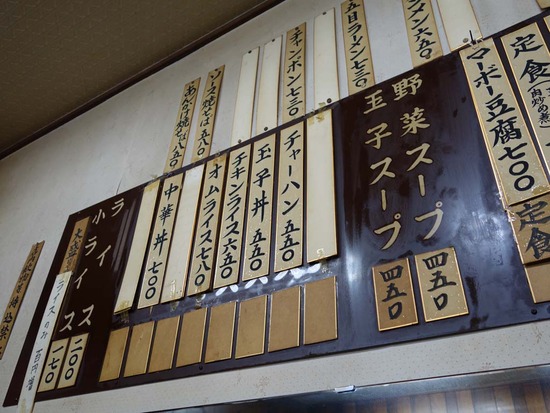 メン 六五〇
五目ラーメン 七五〇
チャンポン 七三〇
ソース焼そば 五八〇
あんかけ焼そば 八五〇
定食
マーボー豆腐 七〇〇
定食
野菜スープ 四五〇
玉子スープ 四五〇
チャーハン 五五〇
玉子丼 五五〇
チキンライス 六五〇
オムライス 七八〇
中華丼 七〇〇
ライス 二〇〇
小ライス 一七〇
大盛
ライスのみ 百円増